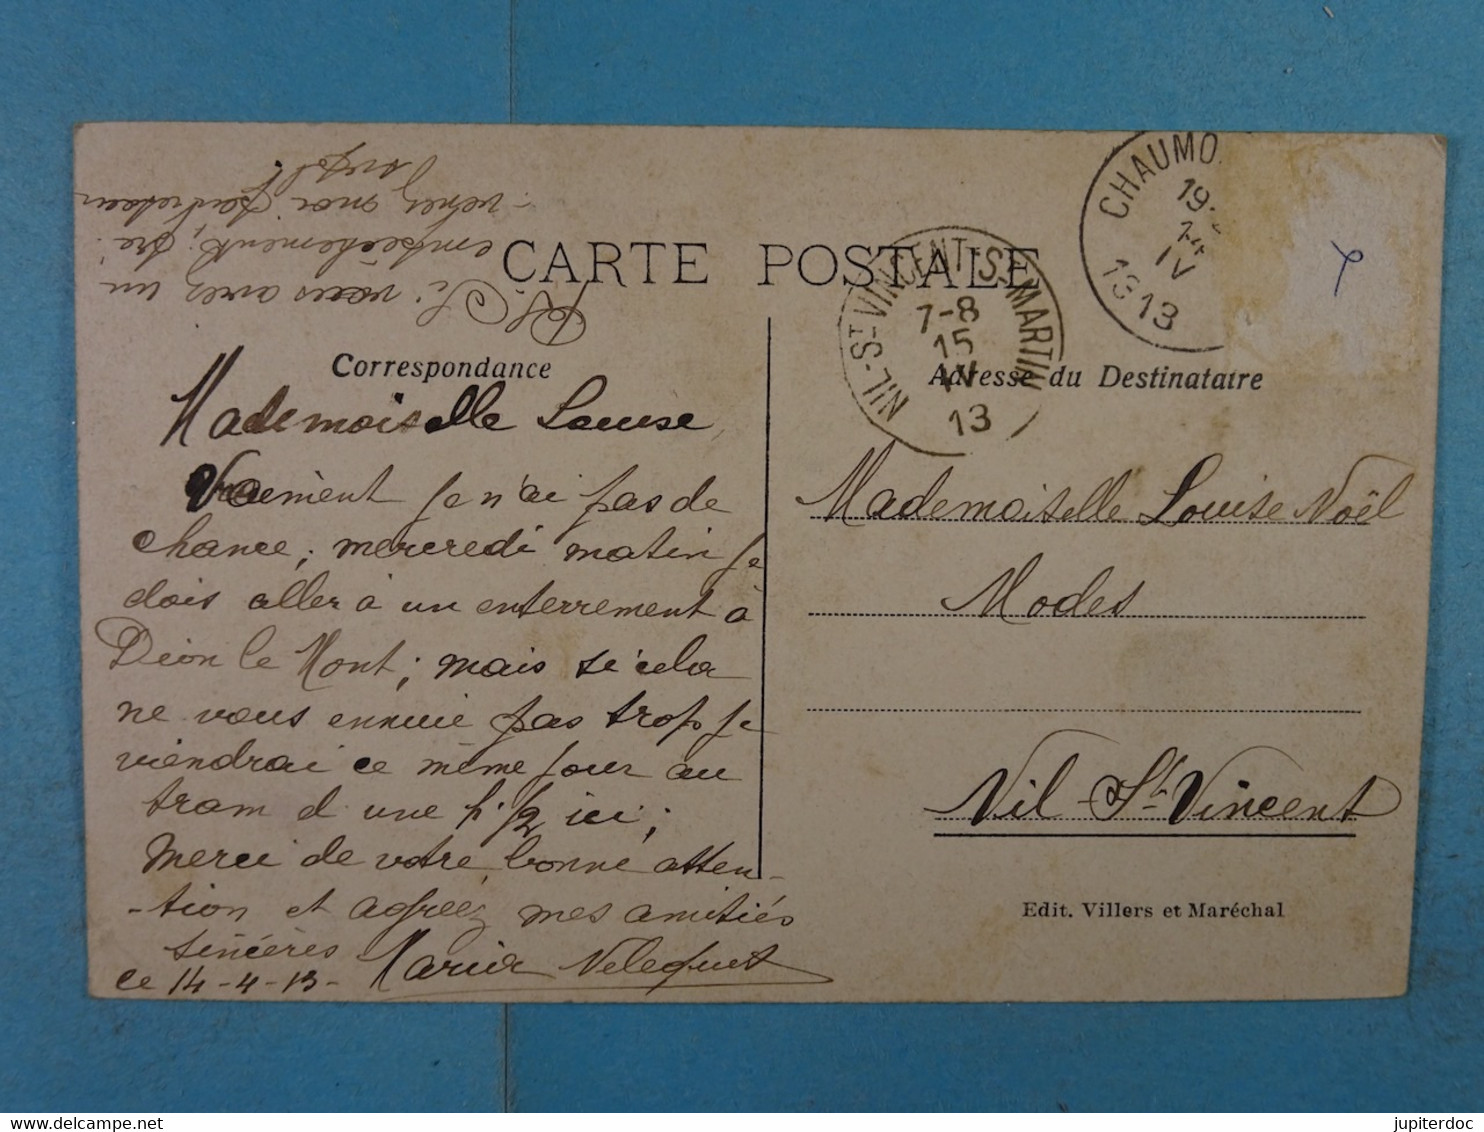 CARTE POSTALE
Correspondance
Adresse du Destinataire
Mademoiselle Louise,
Vraiment je n'ai pas de
chance; mercredi matin je
dois aller à un enterrement à
Dion le Mont; mais si cela
ne vous ennuie pas trop je
viendrai ce même jour au
tram d'une h 1/2 ici;
Merci de votre bonne atten-
-tion et agréez mes amitiés
sincères Maria Veleghet
ce 14-4-13-
Si vous avez un
empêchement, pré-
venez moi
Mademoiselle Louise Noël
Modes
Nil St Vincent
Edit. Villers et Maréchal
NIL-ST-VINCENT-ST-MARTIN
7-8
15
IV
13
CHAUMO
19
14
IV
1913
jupiterdoc